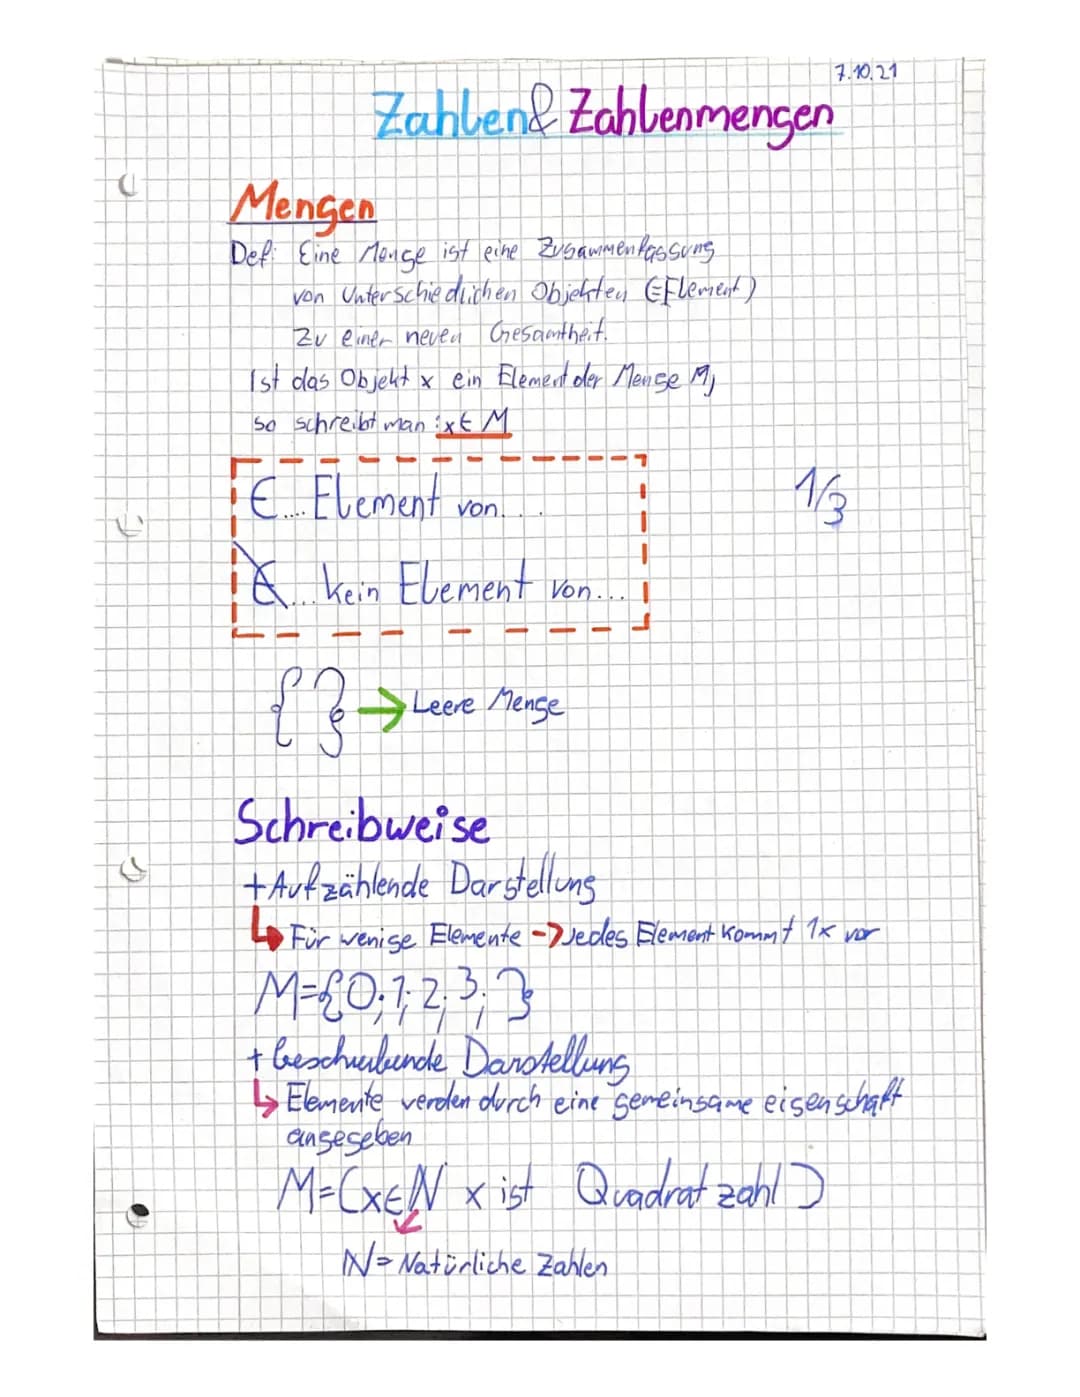 7.10.21
Zahlen & Zahlenmengen
Mengen
Def: Eine Menge ist eine Zusammenfassung
von Unterschiedlichen Objekten (∈Element)
Zu einer neuen Gesamtheit.
Ist das Objekt x ein Element der Menge M,
so schreibt man: x∈M
∈... Element von...
1/3
∉... kein Element von...
{ } → Leere Menge
Schreibweise
+ Aufzählende Darstellung
↳ Für wenige Elemente -> Jedes Element kommt 1x vor
M={0;1;2;3;}
+ beschreibende Darstellung
↳ Elemente werden durch eine gemeinsame eigenschaft
angegeben
M=(x∈ℕ x ist Quadratzahl)
ℕ= Natürliche Zahlen